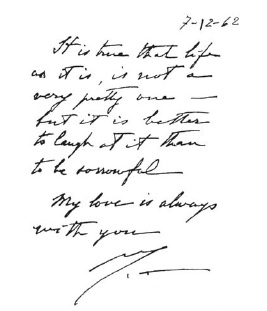 7-12-62
It is true that life
as it is, is not a
very pretty one —
but it is better
to laugh at it than
to be sorrowful
My love is always
with you